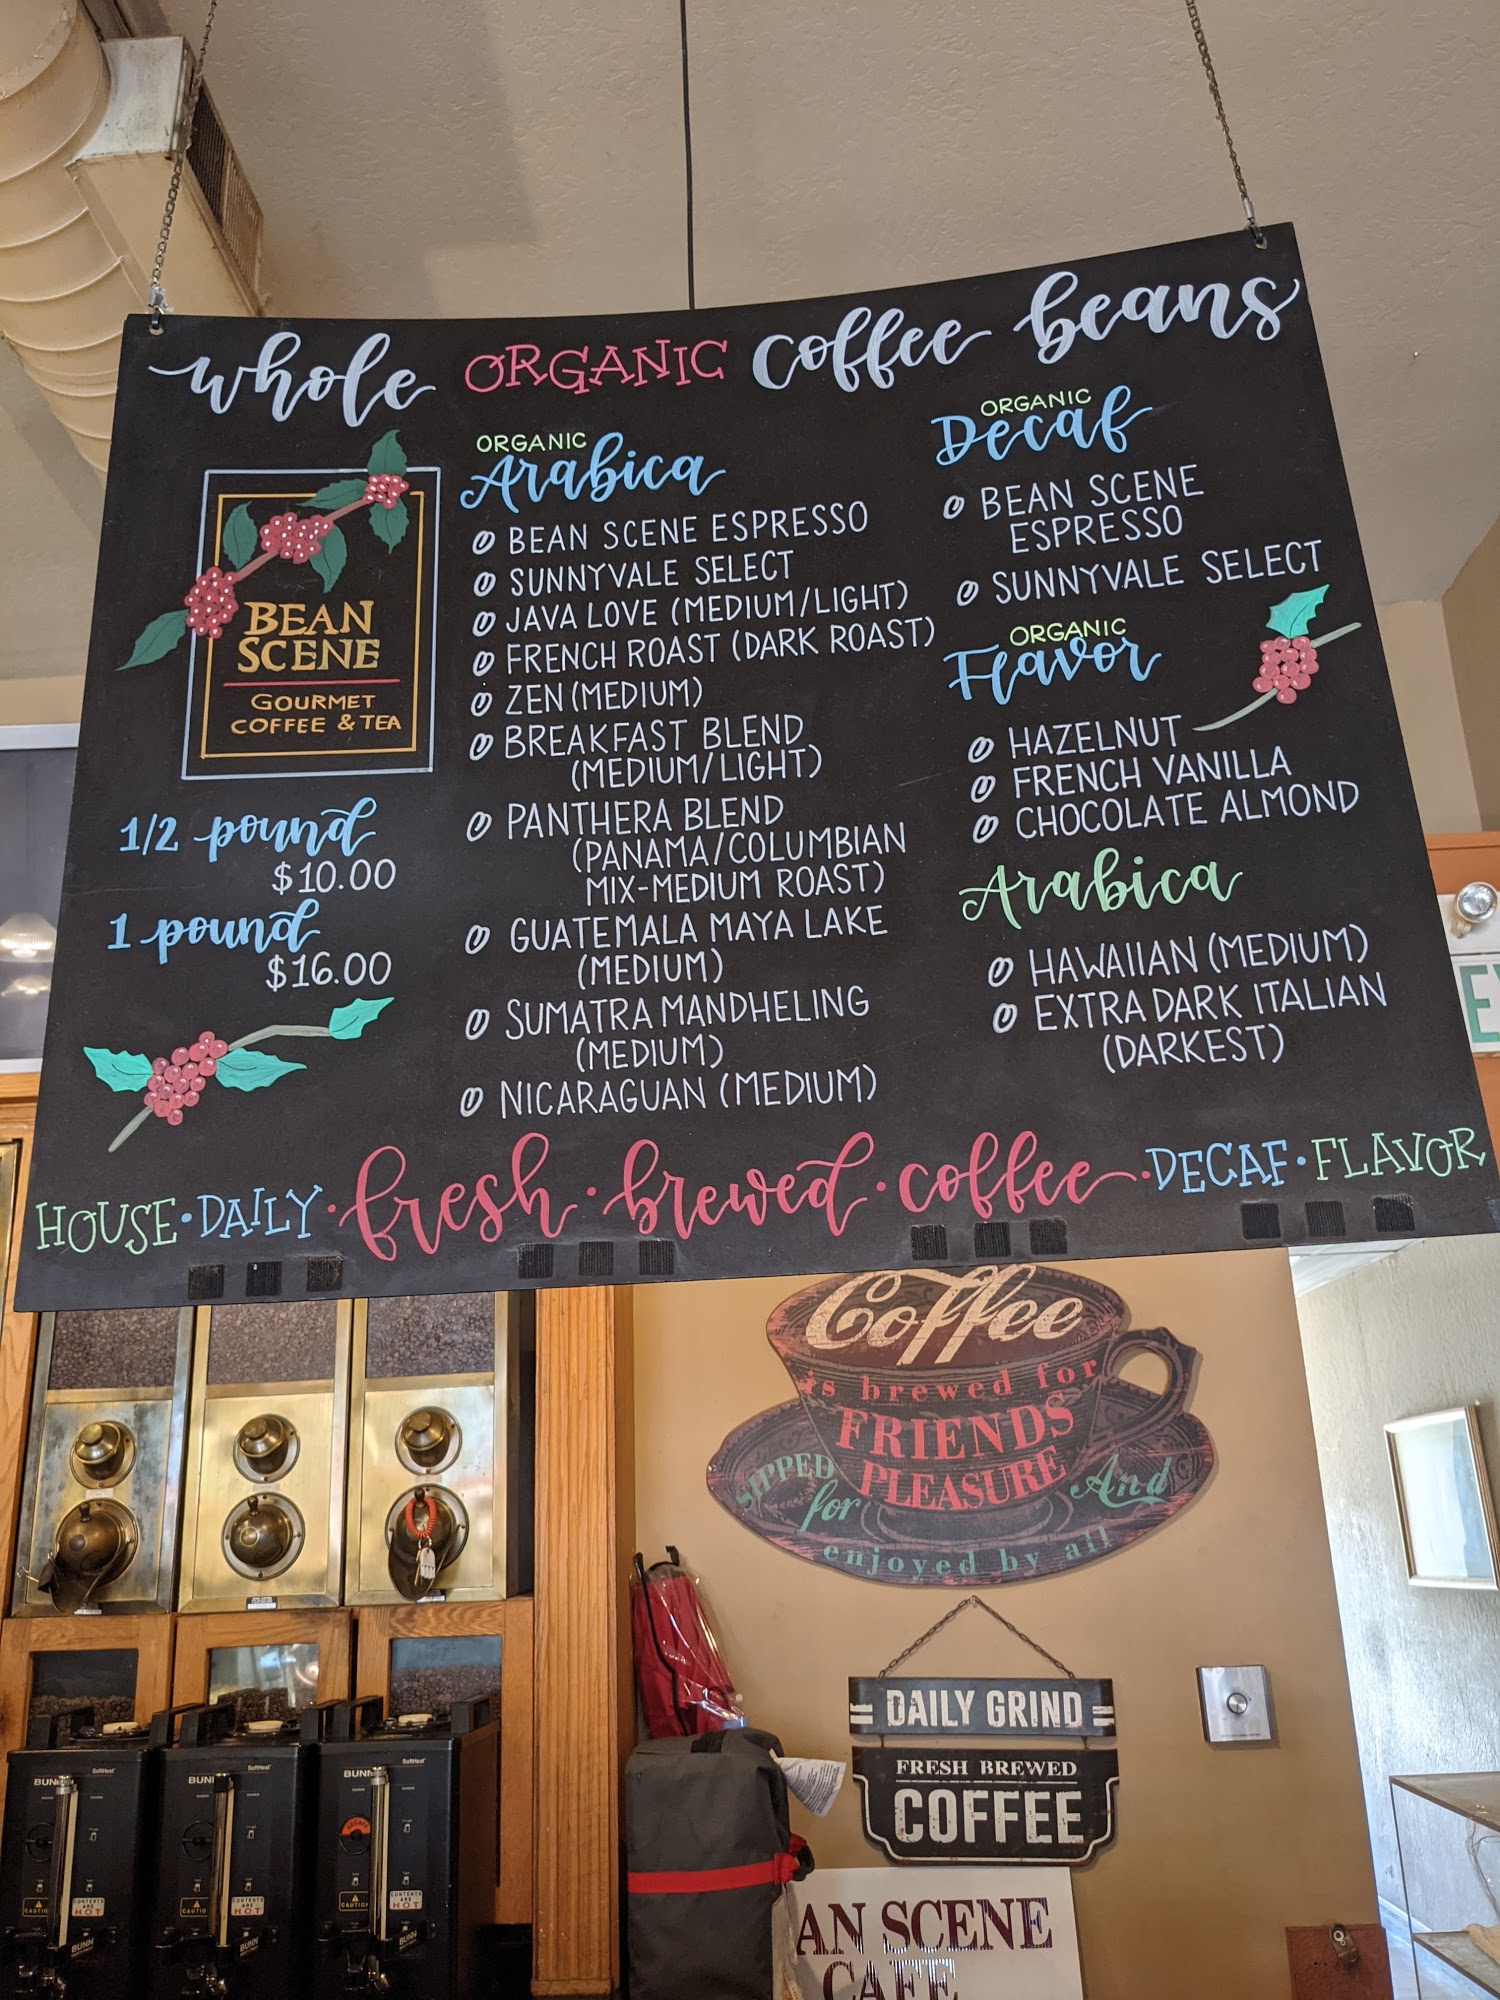 whole ORGANIC coffee beans
BEAN
SCENE
GOURMET
COFFEE & TEA
1/2 pound
$10.00
1 pound
$16.00
ORGANIC
Arabica
BEAN SCENE ESPRESSO
SUNNYVALE SELECT
JAVA LOVE (MEDIUM/LIGHT)
FRENCH ROAST (DARK ROAST)
ZEN (MEDIUM)
BREAKFAST BLEND
(MEDIUM/LIGHT)
PANTHERA BLEND
(PANAMA/COLUMBIAN
MIX-MEDIUM ROAST)
GUATEMALA MAYA LAKE
(MEDIUM)
SUMATRA MANDHELING
(MEDIUM)
NICARAGUAN (MEDIUM)
ORGANIC
Decaf
BEAN SCENE
ESPRESSO
SUNNYVALE SELECT
ORGANIC
Flavor
HAZELNUT
FRENCH VANILLA
CHOCOLATE ALMOND
Arabica
HAWAIIAN (MEDIUM)
EXTRA DARK ITALIAN
(DARKEST)
HOUSE • DAILY • fresh • brewed • coffee • DECAF • FLAVOR
Coffee
is brewed for
FRIENDS
SIPPED for PLEASURE And
enjoyed by all
DAILY GRIND
FRESH BREWED
COFFEE
AN SCENE
CAFE
SoftHeat
BUNN
CAUTION
CONTENTS
ARE
HOT
BUNN
SoftHeat
BUNN
CAUTION
CONTENTS
ARE
HOT
BUNN
SoftHeat
BUNN
DECAF
CAUTION
CONTENTS
ARE
HOT
BUNN